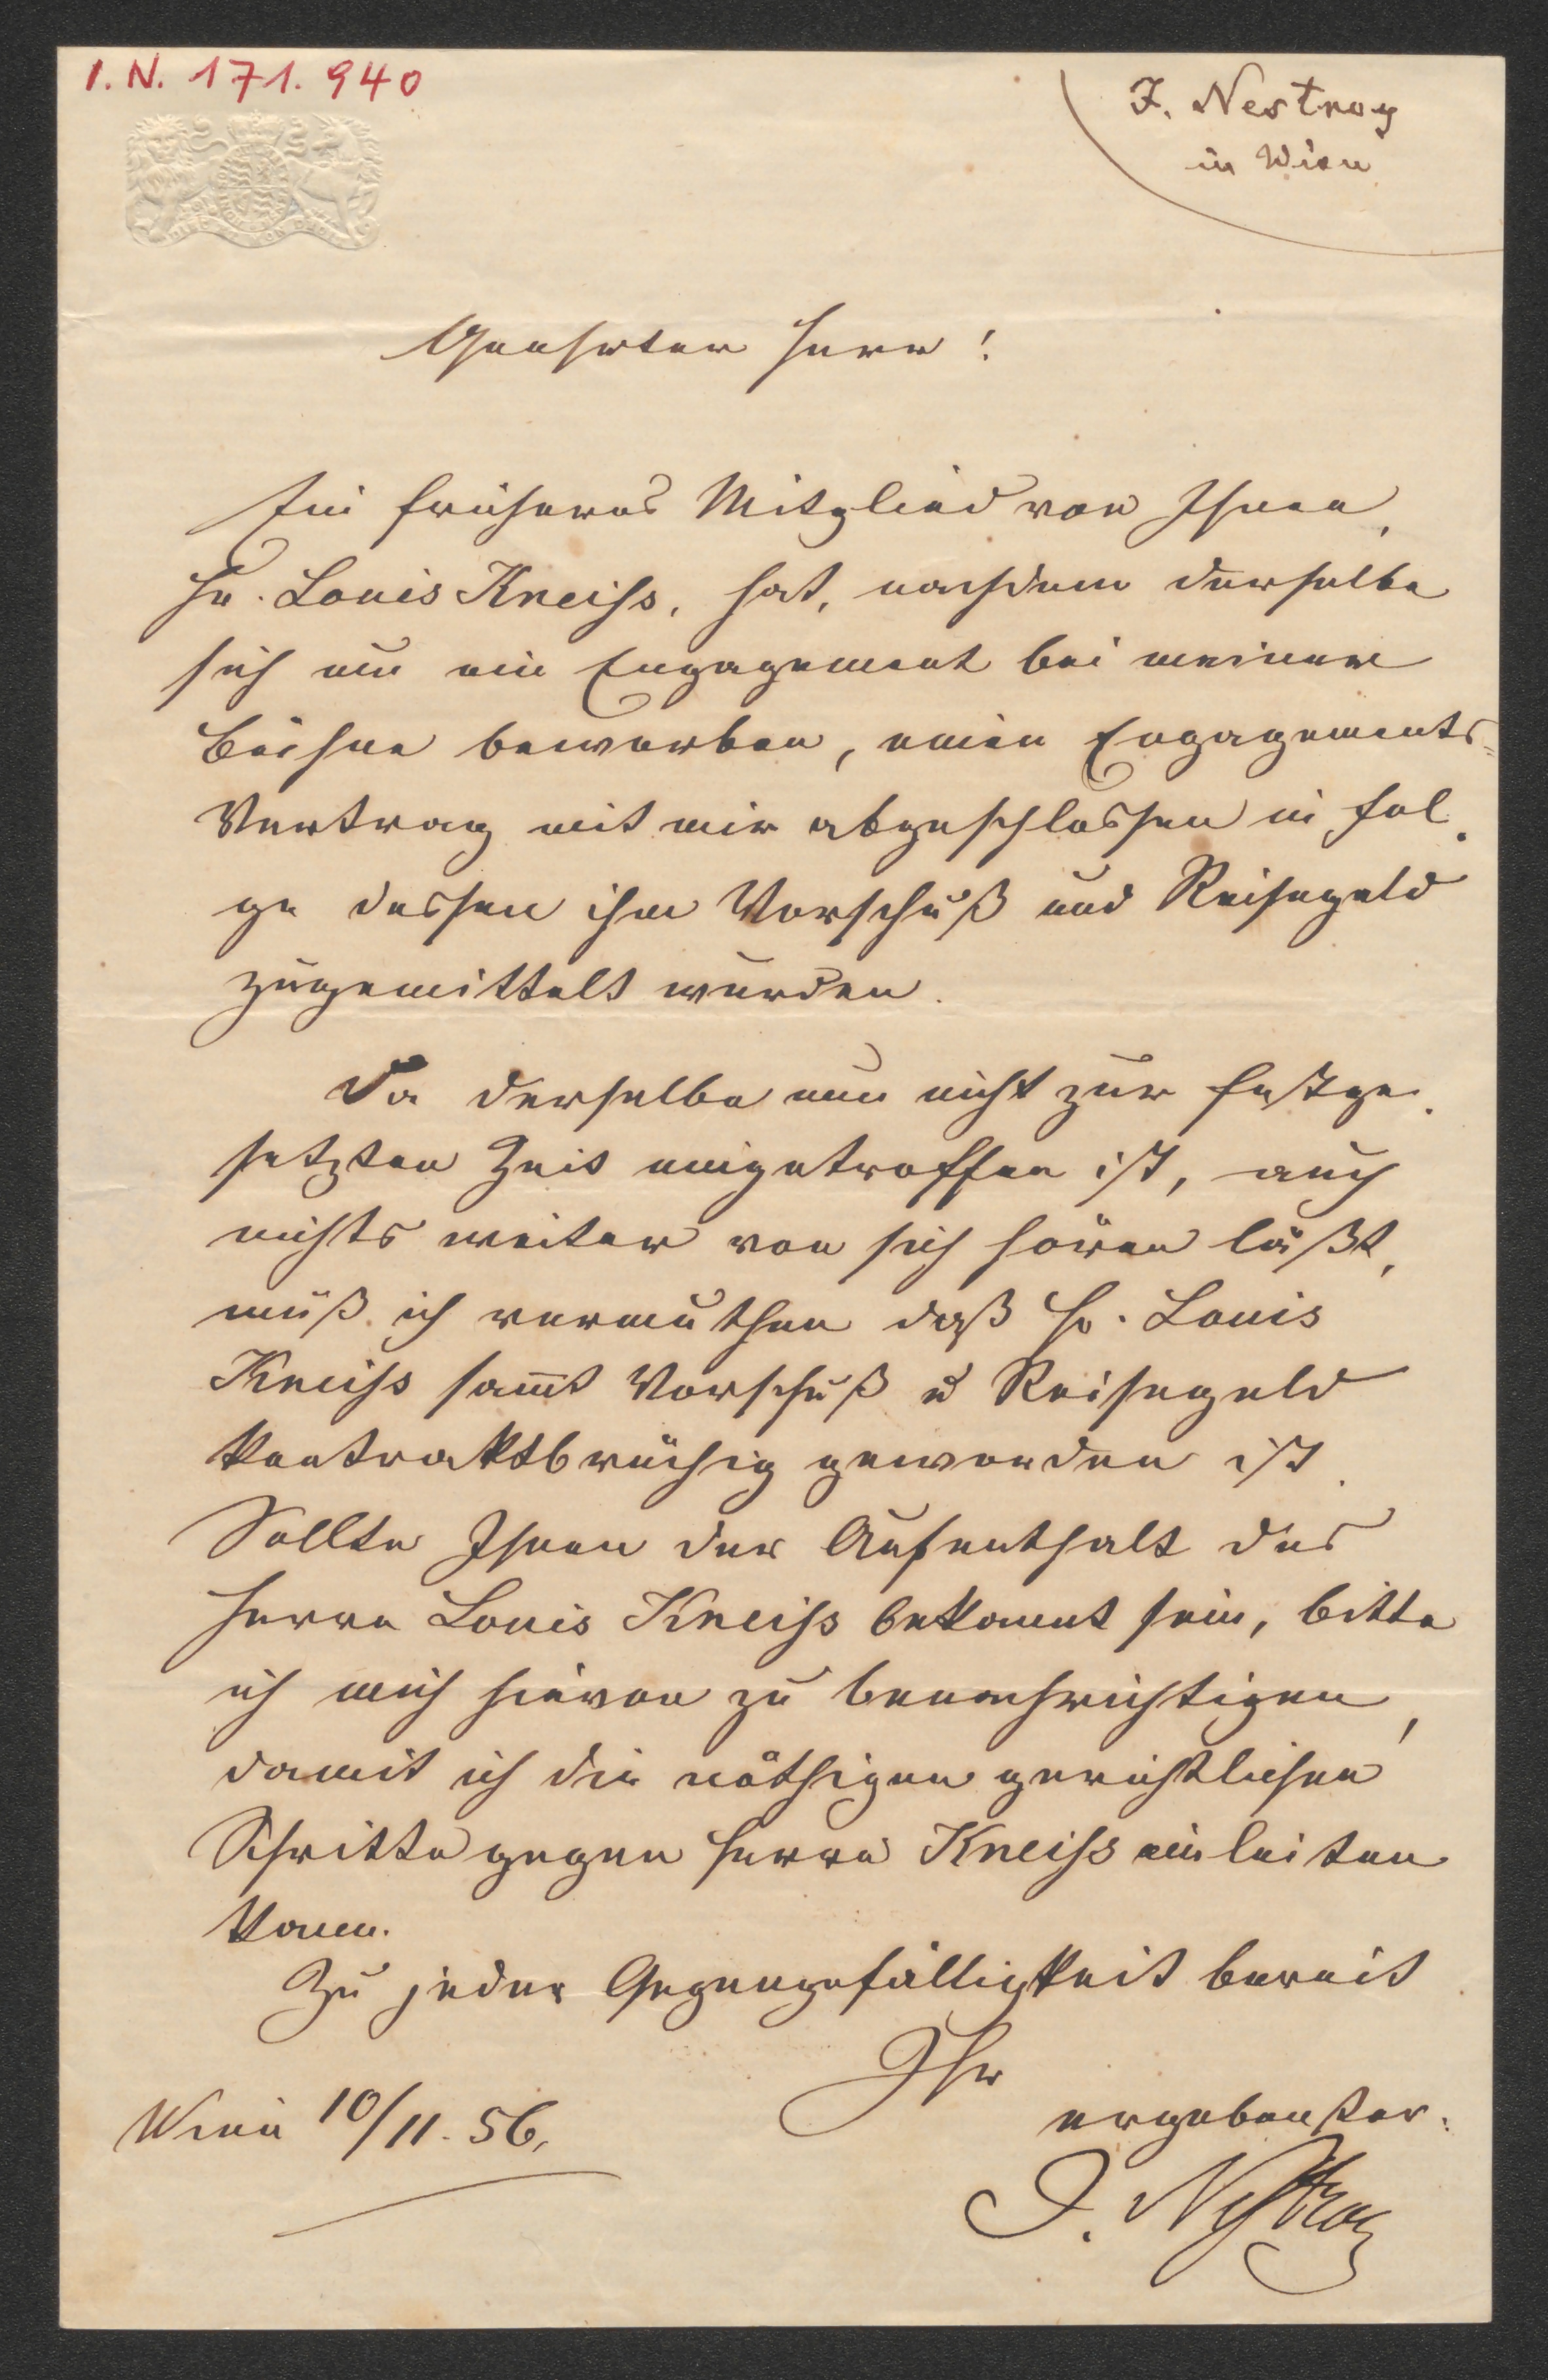 I. N. 171.940
J. Nestroy
in Wien
Geehrter Herr!
Ein früheres Mitglied von Ihnen,
Hr. Louis Kneiss, hat, nachdem derselbe
sich um ein Engagement bei meiner
Bühne beworben, einen Engagements-
Vertrag mit mir abgeschlossen in Fol-
ge dessen ihm Vorschuß und Reisegeld
zugemittelt wurden.
Da derselbe nun nicht zur festge-
setzten Zeit eingetroffen ist, auch
nichts weiter von sich hören läßt,
muß ich vermuthen daß Hr. Louis
Kneiss sam̄t Vorschuß u Reisegeld
kontraktbrüchig geworden ist.
Sollte Ihnen der Aufenthalt des
Herrn Louis Kneiss bekannt sein, bitte
ich mich hievon zu benachrichtigen,
damit ich die nöthigen gerichtlichen
Schritte gegen Herrn Kneiss einleiten
kann.
Zu jeder Gegengefälligkeit bereit
Ihr
Wien 10/11. 56.
ergebenster.
J. Nestroy